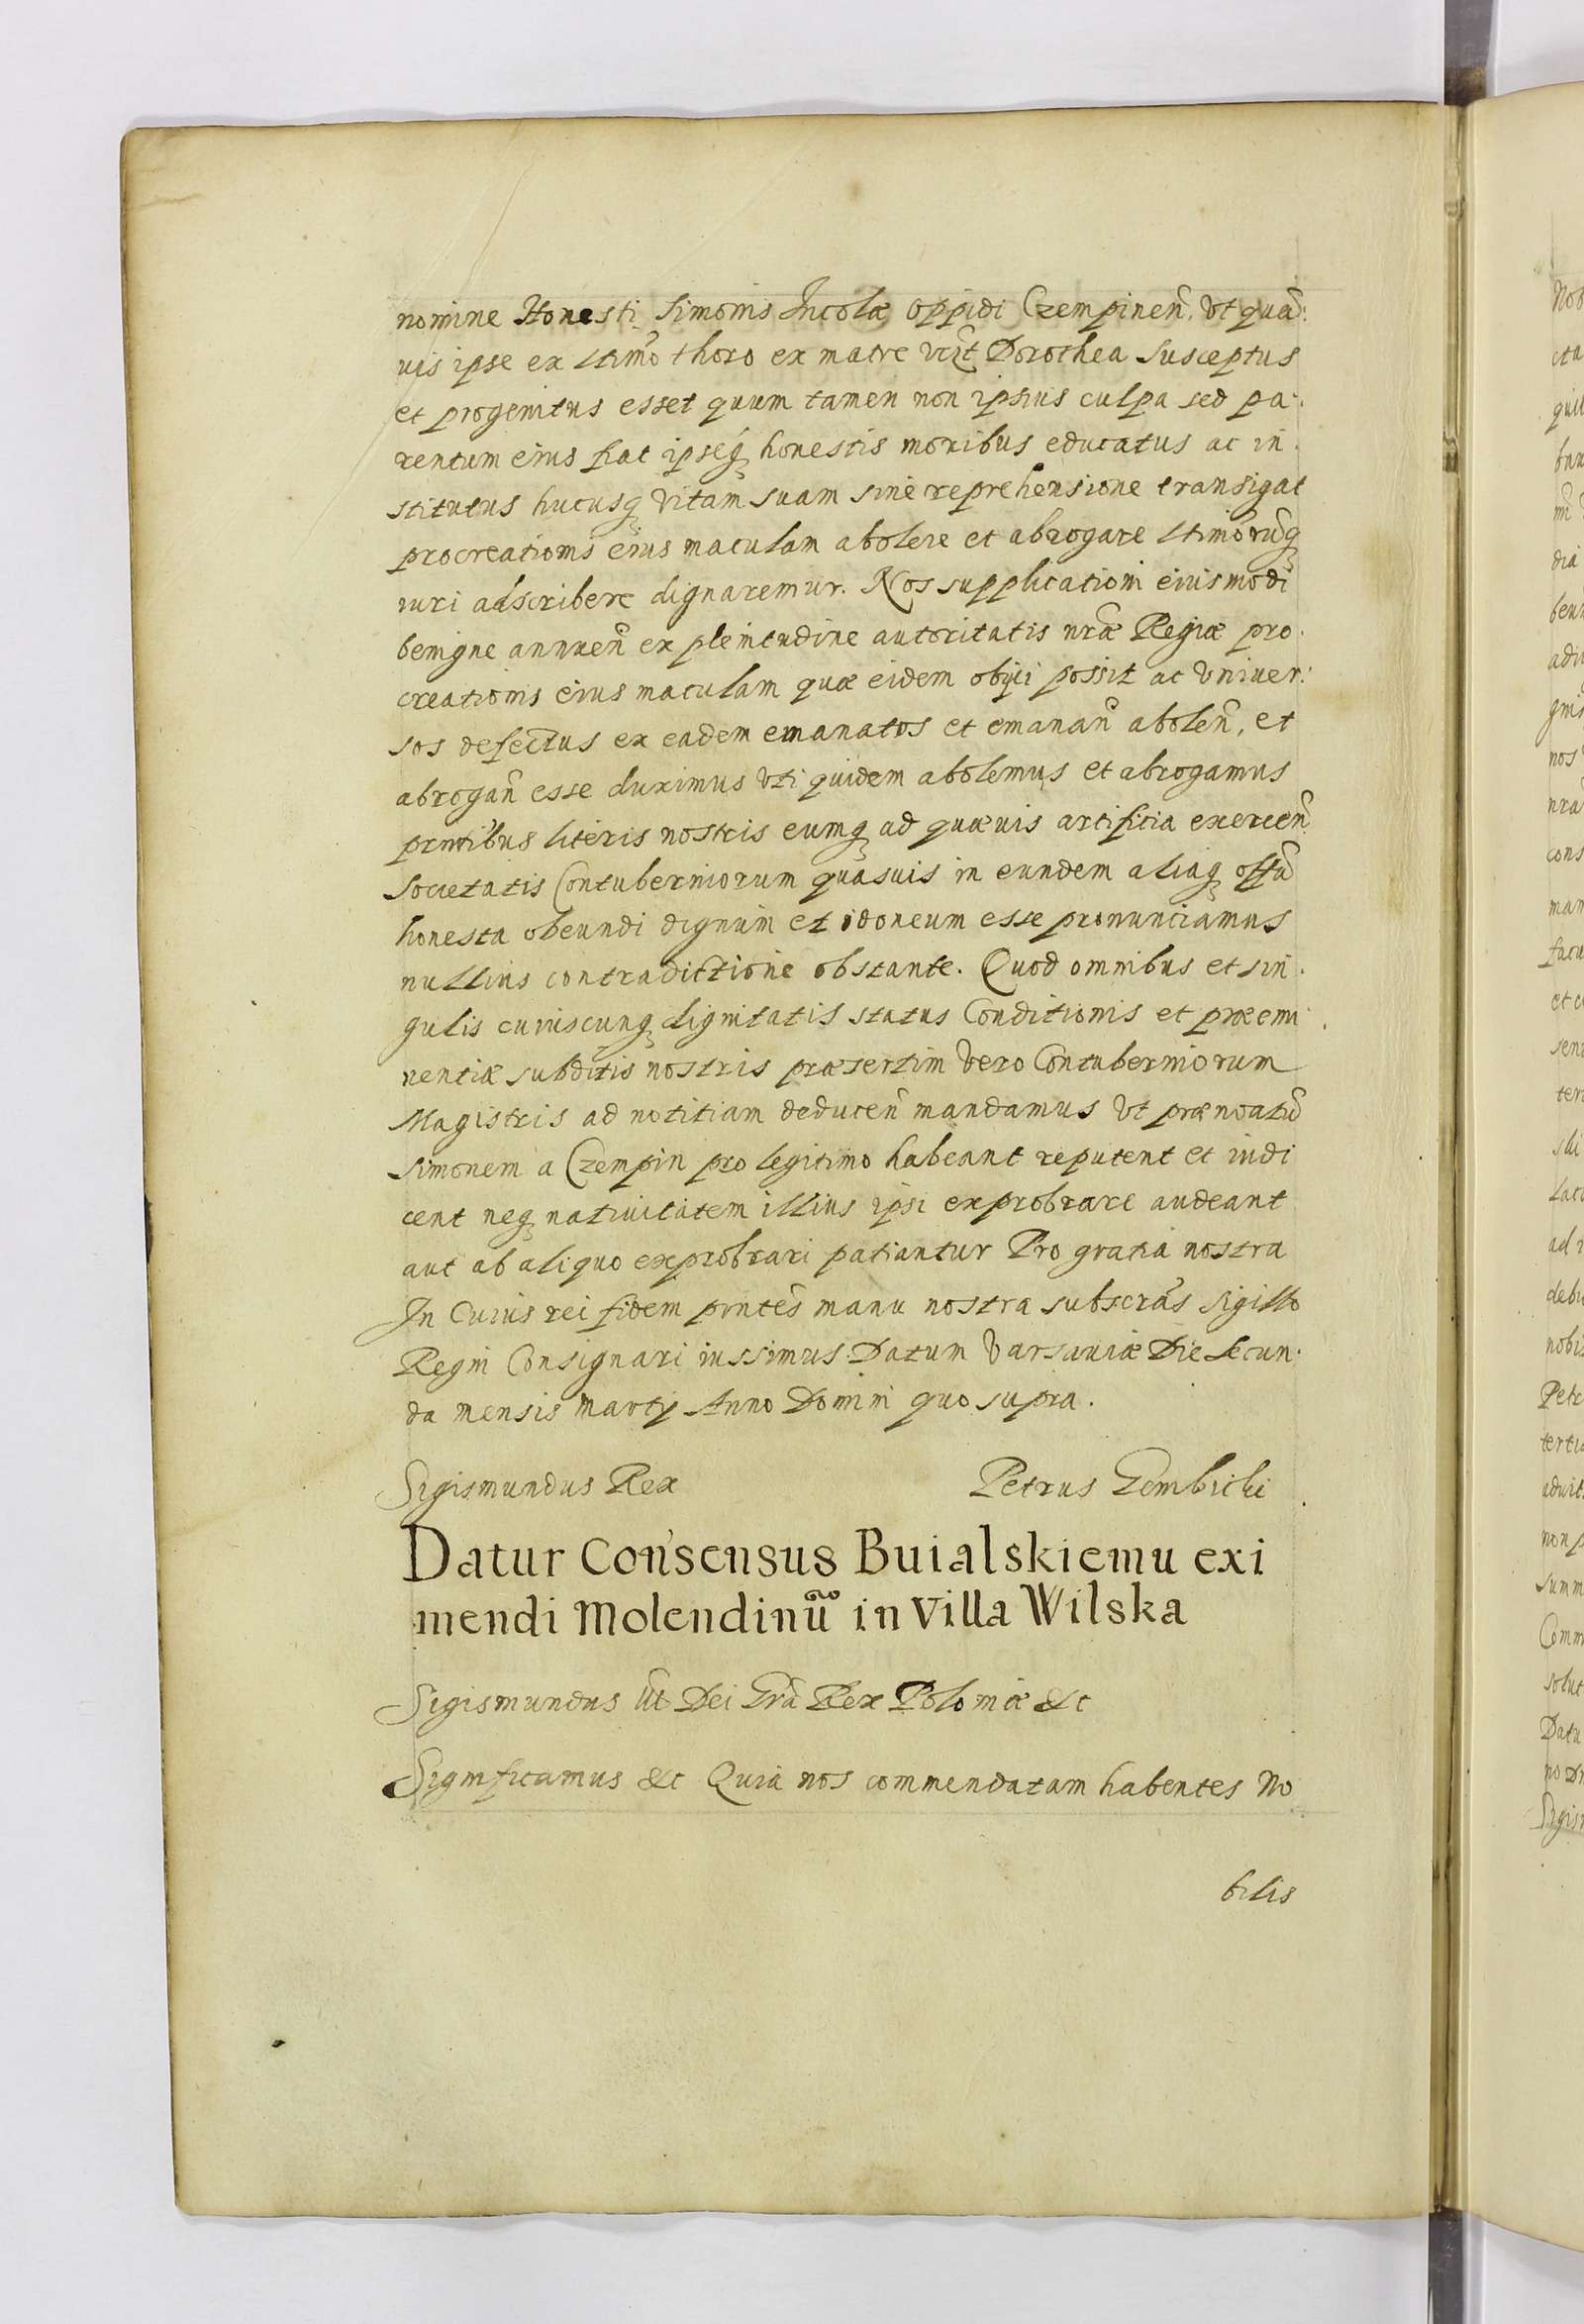 nomine Honesti Simonis Incolæ oppidi Czempineñ, Vt quã:
uis ipse ex ltimo thoro ex matre vczt Dorothea susceptus
et progenitus esset quum tamen non ipsius culpa sed pa:
rentum eius fiat ipseq honestis moribus educatus ac in:
stitutus hucusq vitam suam sine reprehensione transigat
procreationis eius maculam abolere et abrogare ltimorũq
iuri adscribere dignaremur. Nos supplicationi eiusmodi
benigne annueñ ex plenitudine autoritatis nræ Regiæ pro:
creationis eius maculam quæ eidem obijci possit ac Vniuer:
sos defectus ex eadem emanatos et emanañ aboleñ, et
abrogañ esse duximus Vti quidem abolemus et abrogamus
prntibus literis nostris eumq ad quæuis artificia exerceñ
Societatis Contuberniorum quasuis in eundem aliaq offã
honesta obeundi dignum et idoneum esse pronunciamus
nullius contradictione obstante. Quod omnibus et sin:
gulis cuiuscunq dignitatis status Conditionis et præemi:
nentiæ subditis nostris præsertim Vero Contuberniorum
Magistris ad notitiam deduceñ mandamus Vt prænoatũ
Simonem a Czempin pro legitimo habeant reputent et iudi
cent neq natiuitatem illius ipsi exprobrare audeant
aut ab aliquo exprobrari patiantur Pro gratia nostra
In Cuius rei fidem prntes manu nostra subscras Sigillo
Regni Consignari iussimus. Datum Varsauiæ Die Secun:
da mensis Martij Anno Domini quo supra.
Sigismundus Rex Petrus Gembicki
Datur Consensus Buialskiemu exi
mendi Molendinũ in Villa Wilska
Sigismundus Ut Dei Gra Rex Poloniæ &c
Significamus &c Quia nos commendatam habentes No
bilis